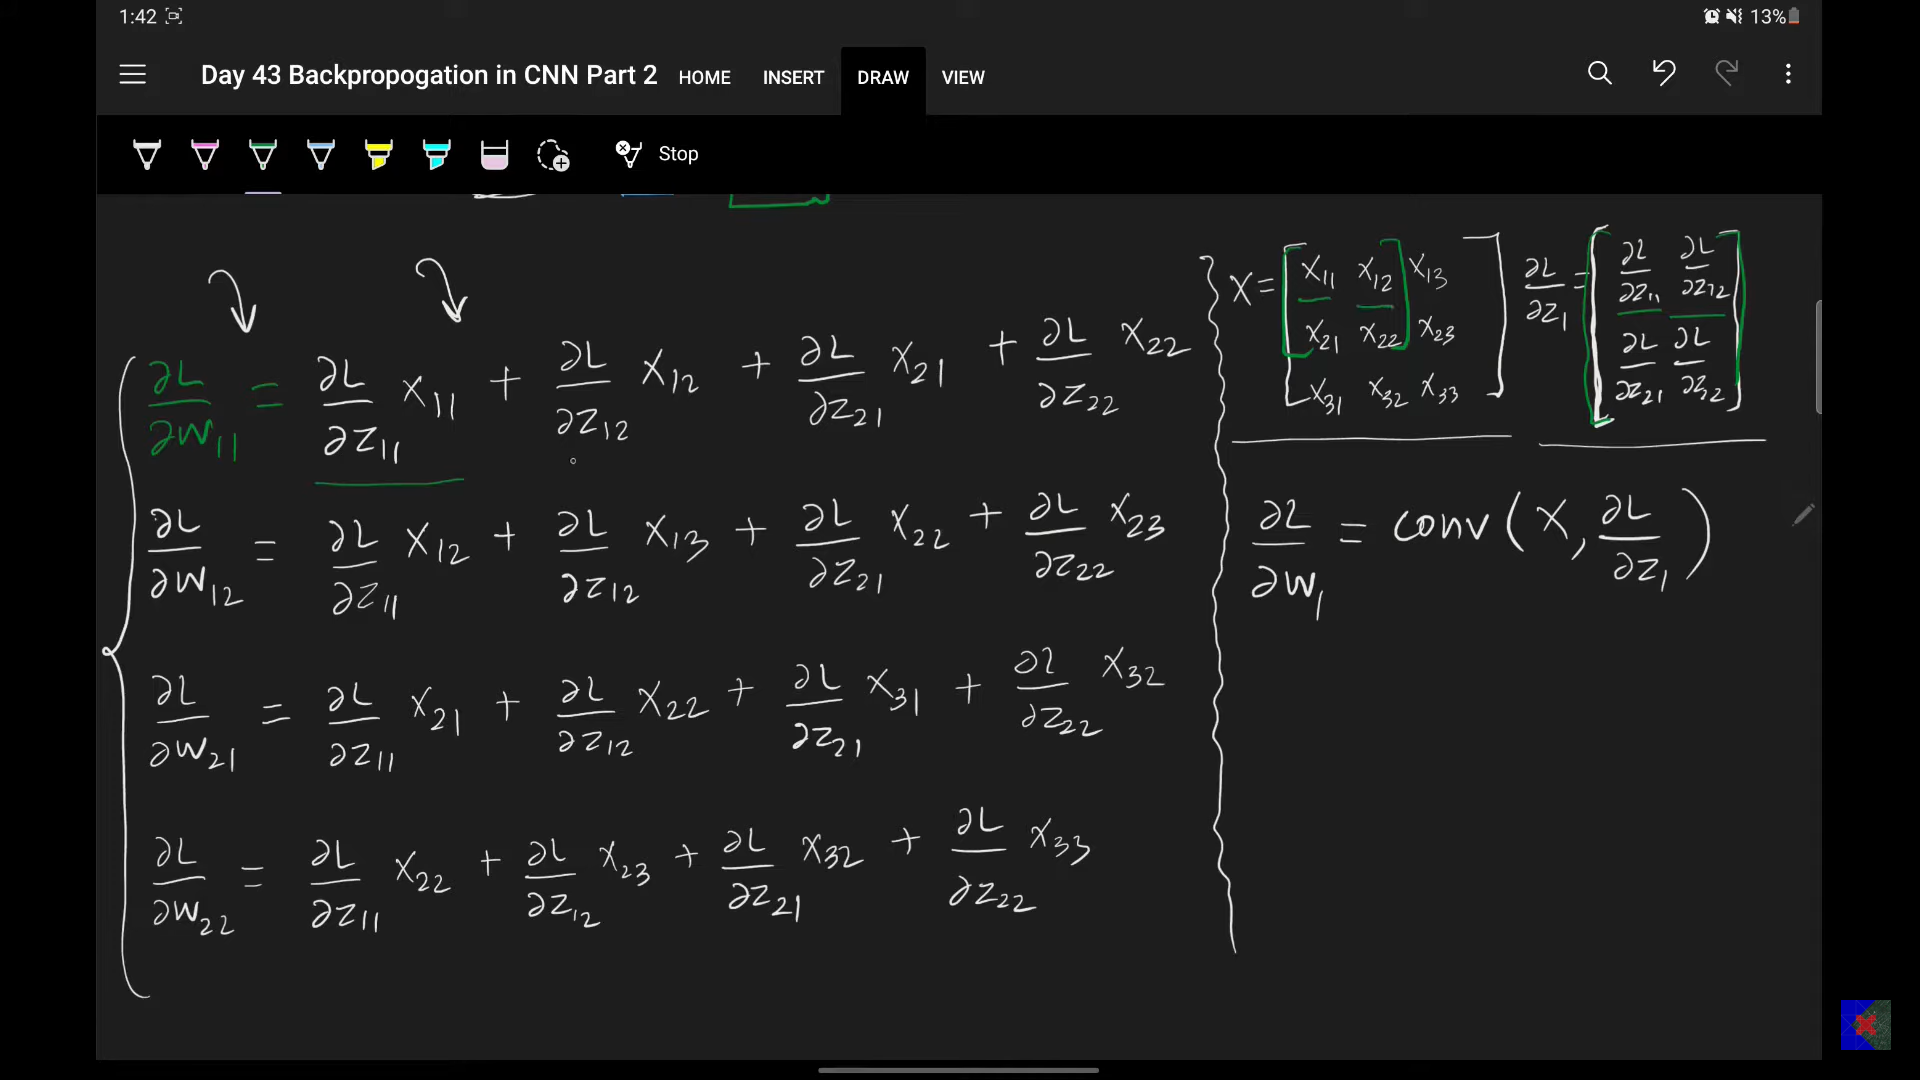 1:42 13%
Day 43 Backpropogation in CNN Part 2 HOME INSERT DRAW VIEW
Stop
∂L/∂W₁₁ = ∂L/∂Z₁₁ X₁₁ + ∂L/∂Z₁₂ X₁₂ + ∂L/∂Z₂₁ X₂₁ + ∂L/∂Z₂₂ X₂₂
∂L/∂W₁₂ = ∂L/∂Z₁₁ X₁₂ + ∂L/∂Z₁₂ X₁₃ + ∂L/∂Z₂₁ X₂₂ + ∂L/∂Z₂₂ X₂₃
∂L/∂W₂₁ = ∂L/∂Z₁₁ X₂₁ + ∂L/∂Z₁₂ X₂₂ + ∂L/∂Z₂₁ X₃₁ + ∂L/∂Z₂₂ X₃₂
∂L/∂W₂₂ = ∂L/∂Z₁₁ X₂₂ + ∂L/∂Z₁₂ X₂₃ + ∂L/∂Z₂₁ X₃₂ + ∂L/∂Z₂₂ X₃₃
X = [X₁₁ X₁₂ X₁₃
X₂₁ X₂₂ X₂₃
X₃₁ X₃₂ X₃₃]
∂L/∂Z₁ = [∂L/∂Z₁₁ ∂L/∂Z₁₂
∂L/∂Z₂₁ ∂L/∂Z₂₂]
∂L/∂W₁ = conv(X, ∂L/∂Z₁)